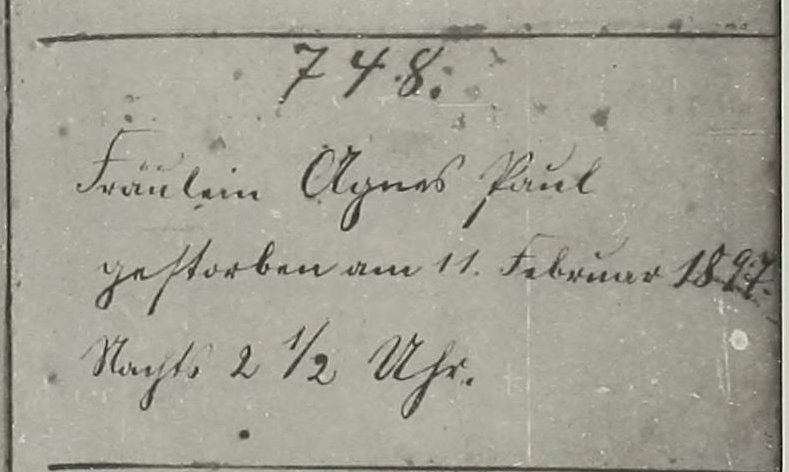 748.
Fräulein Agnes Paul
gestorben am 11. Februar 1897.
Nachts 2 1/2 Uhr.